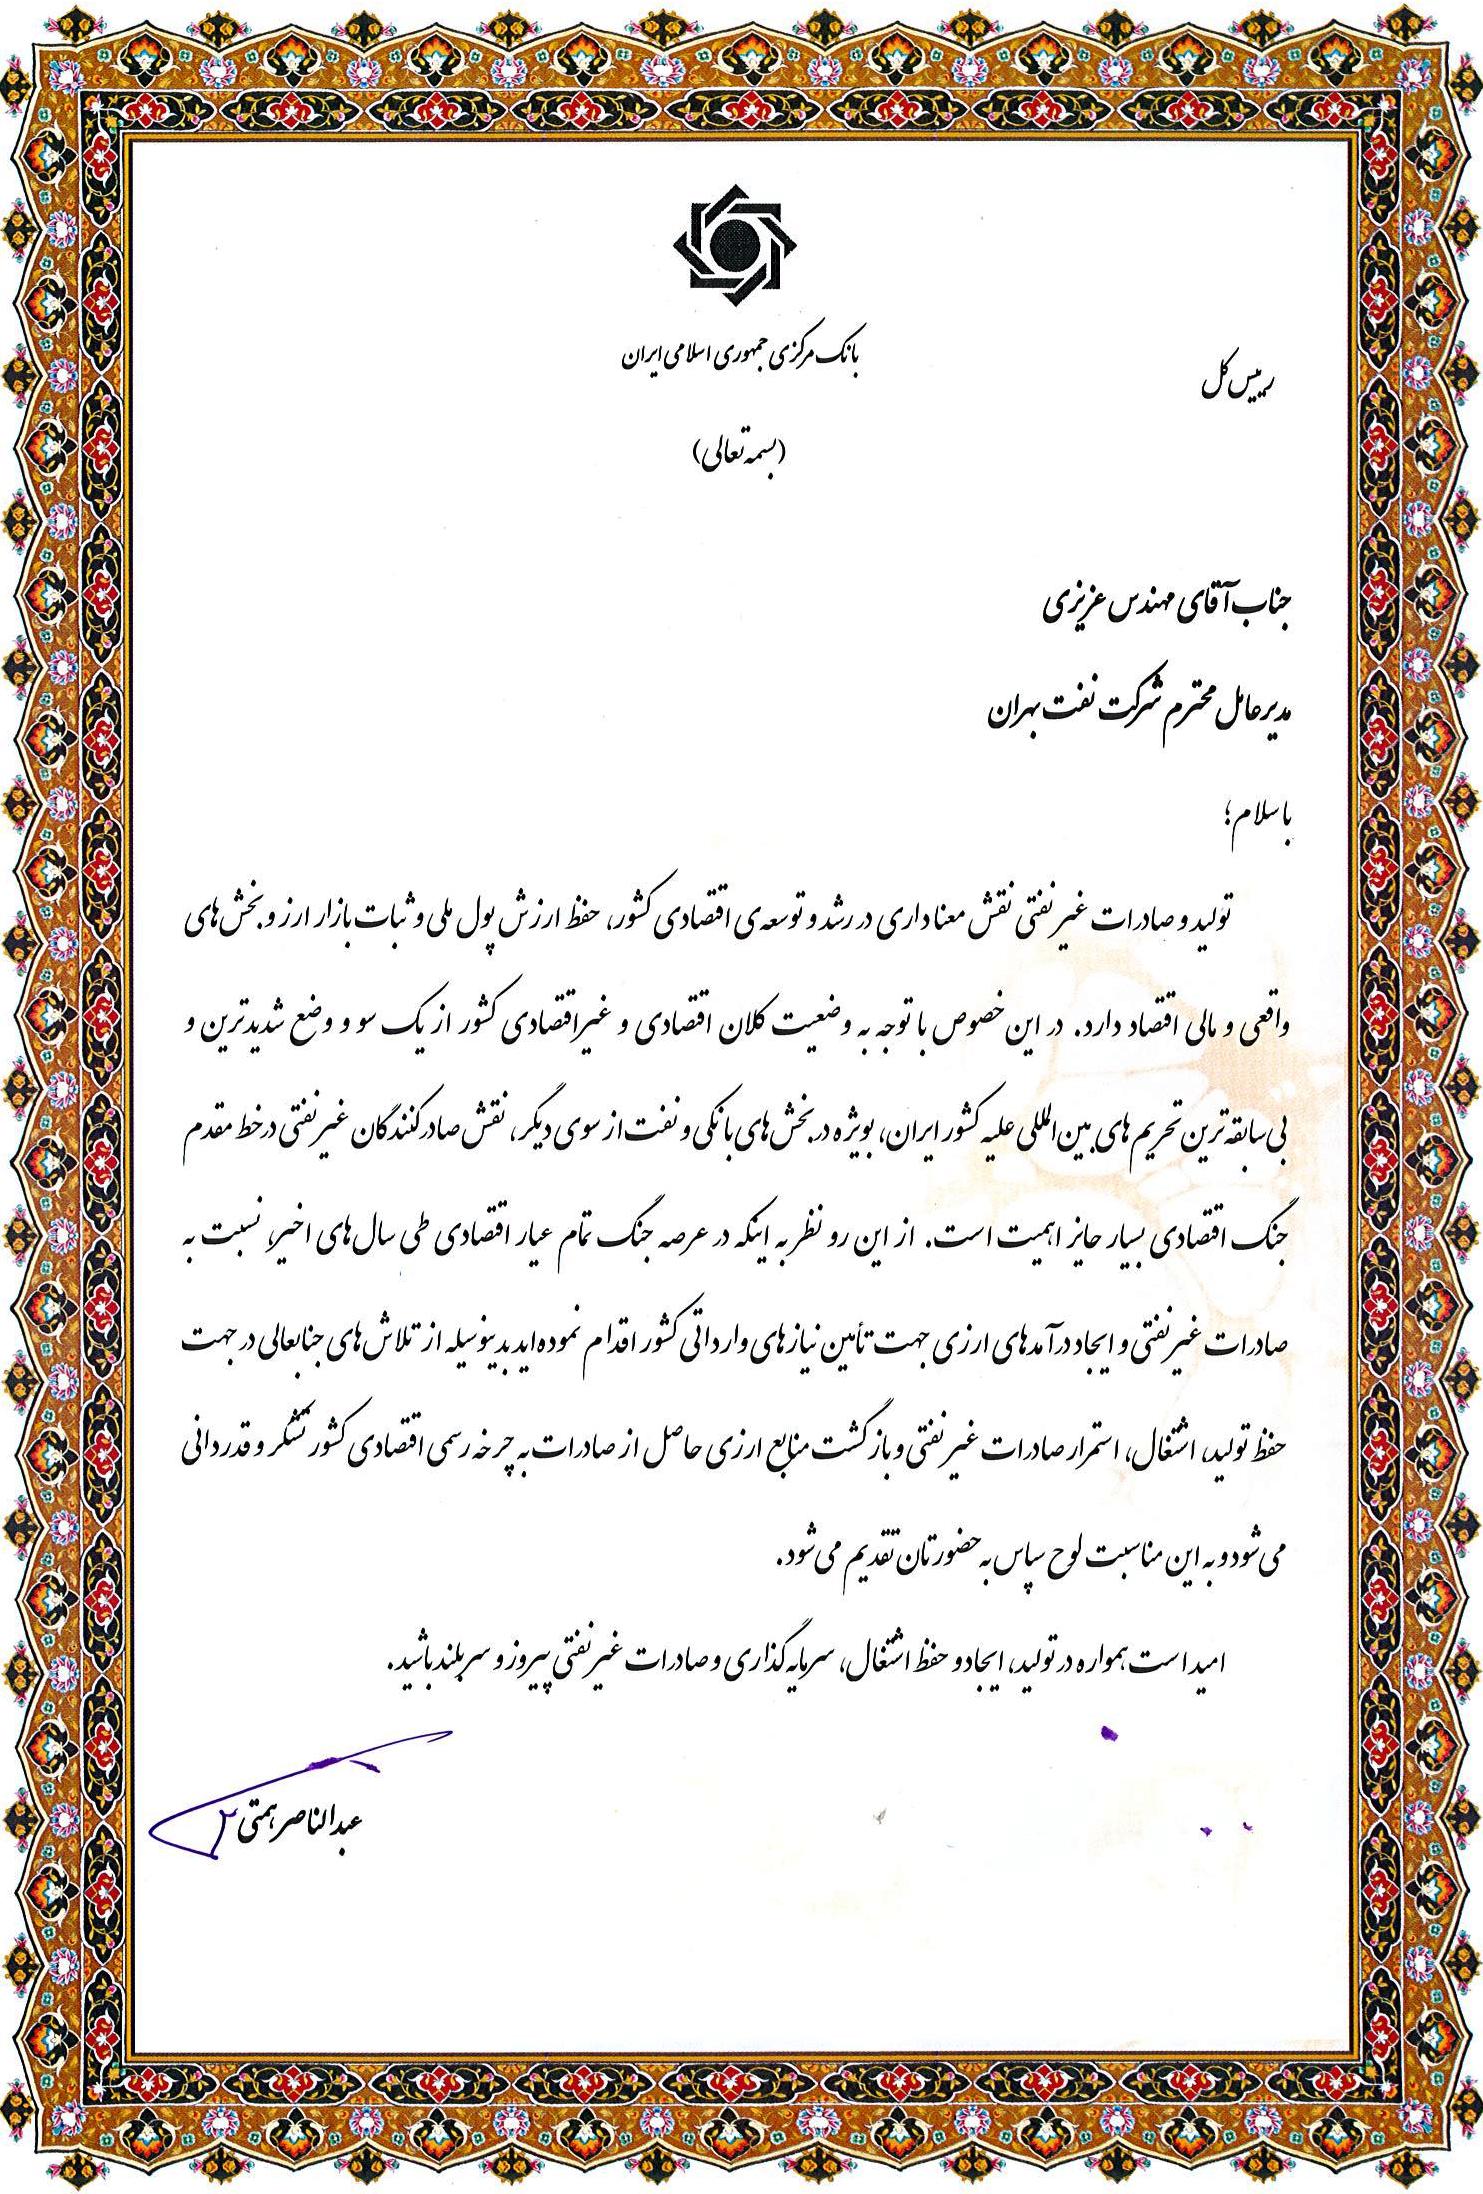 بانک مرکزی جمهوری اسلامی ایران
رییس کل
(بسمه تعالی)
جناب آقای مهندس عزیزی
مدیرعامل محترم شرکت نفت بهران
با سلام؛
تولید و صادرات غیر نفتی نقش معناداری در رشد و توسعه ی اقتصادی کشور، حفظ ارزش پول ملی و ثبات بازار ارز و بخش های
واقعی و مالی اقتصاد دارد. در این خصوص با توجه به وضعیت کلان اقتصادی و غیراقتصادی کشور از یک سو و وضع شدیدترین و
بی سابقه ترین تحریم های بین المللی علیه کشور ایران، بویژه در بخش های بانکی و نفت از سوی دیگر، نقش صادرکنندگان غیر نفتی در خط مقدم
جنگ اقتصادی بسیار حایز اهمیت است. از این رو نظر به اینکه در عرصه جنگ تمام عیار اقتصادی طی سال های اخیر، نسبت به
صادرات غیر نفتی و ایجاد درآمدهای ارزی جهت تأمین نیازهای وارداتی کشور اقدام نموده اید بدینوسیله از تلاش های جنابعالی در جهت
حفظ تولید، اشتغال، استمرار صادرات غیر نفتی و بازگشت منابع ارزی حاصل از صادرات به چرخه رسمی اقتصادی کشور تشکر و قدردانی
می شود و به این مناسبت لوح سپاس به حضورتان تقدیم می شود.
امید است همواره در تولید، ایجاد و حفظ اشتغال، سرمایه گذاری و صادرات غیر نفتی پیروز و سربلند باشید.
عبدالناصر همتی